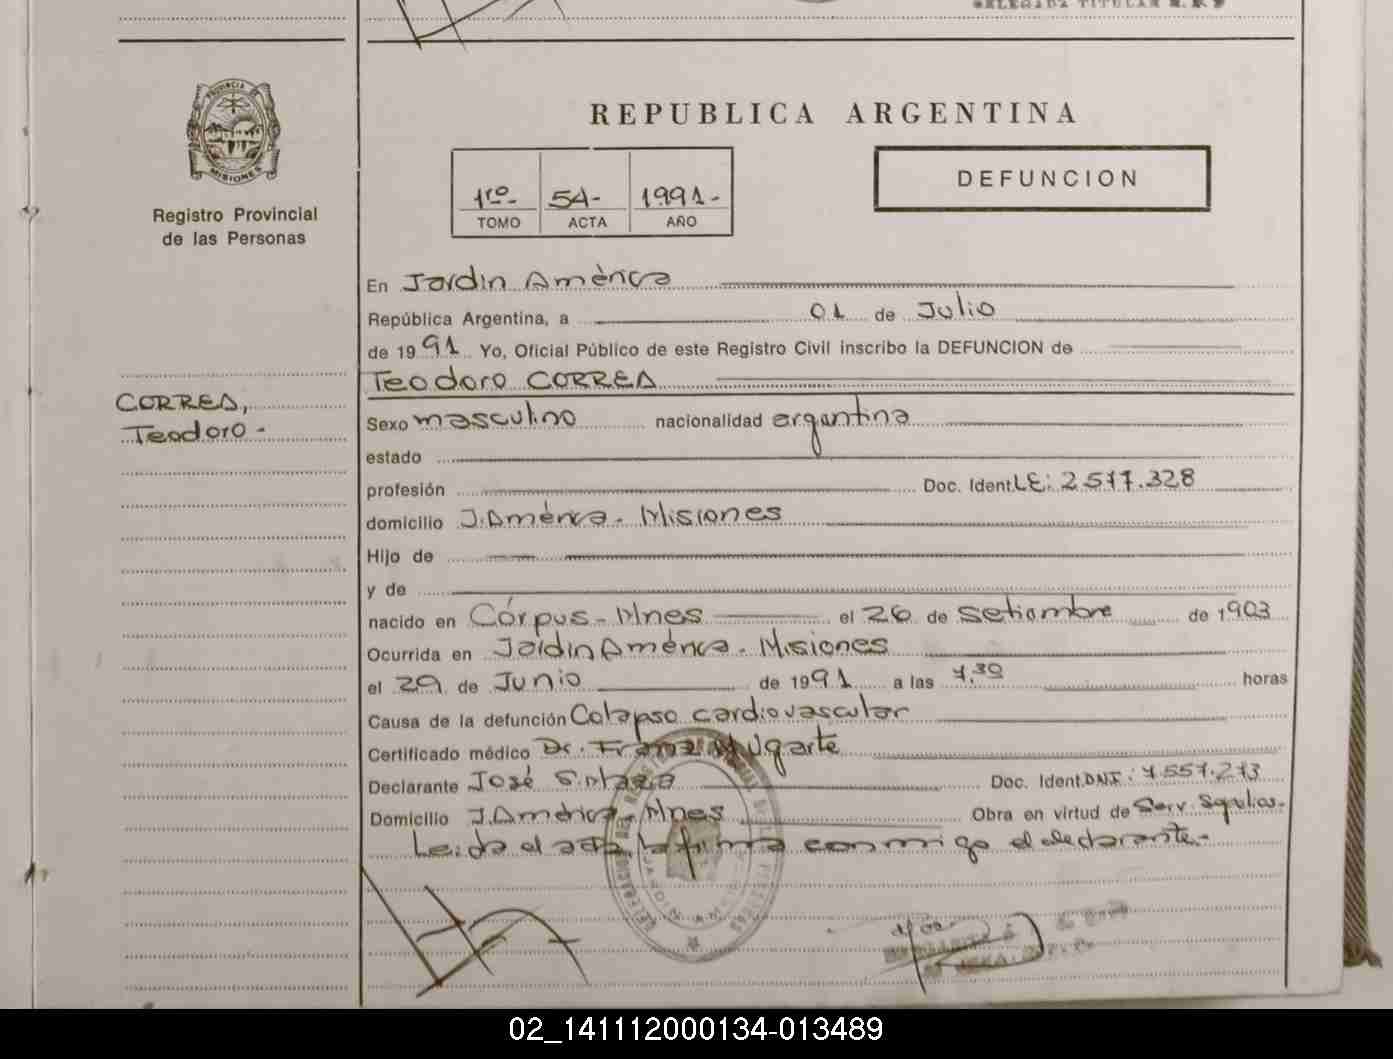 PROVINCIA DE
MISIONES
Registro Provincial
de las Personas
CORREA,
Teodoro -
REPUBLICA ARGENTINA
1ro- 54- 1991-
TOMO ACTA AÑO
DEFUNCION
En Jardin América
República Argentina, a 01 de Julio
de 1991 Yo, Oficial Público de este Registro Civil inscribo la DEFUNCION de
Teodoro CORREA
Sexo masculino nacionalidad argentina
estado
profesión Doc. Ident. LE: 2.577.328
domicilio J. América - Misiones
Hijo de
y de
nacido en Córpus - Mnes el 26 de setiembre de 1903
Ocurrida en Jardin América - Misiones
el 29 de Junio de 1991 a las 7,30 horas
Causa de la defunción Colapso cardiovascular
Certificado médico Dr. Franz Ugarte
Declarante José
Doc. Ident. DNI: 7.557.273
Domicilio J. América - Mnes Obra en virtud de Serv. Sepelios.
Leida el acta la firma conmigo el declarante.-
02_141112000134-013489